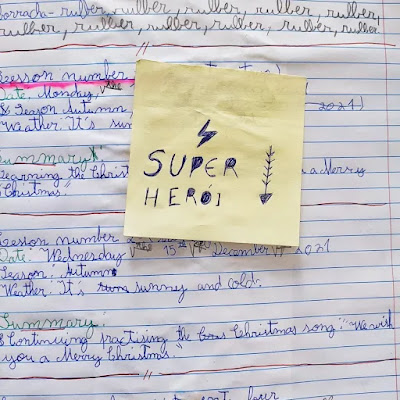 borracha - rubber, rubber, rubber, rubber, rubber,
rubber, rubber, rubber, rubber, rubber, rubber
Lesson number
Date: Monday,
Season Autumn, 2021)
Weather: It's sun
Summary:
Learning the Christ s a Merry
Christmas"
SUPER
HERÓI
Lesson number
Date: Wednesday 15th December 2021
Season: Autumn
Weather: It's sunny and cold.
Summary:
Continuing practising the Christmas song: "We wish
you a Merry Christmas"